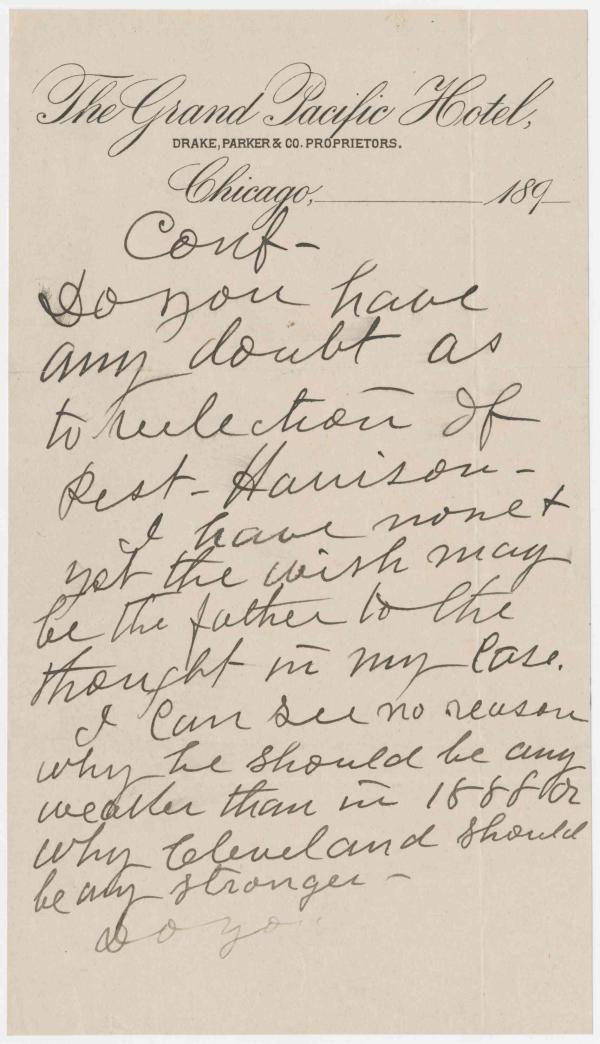 The Grand Pacific Hotel,
DRAKE, PARKER & CO. PROPRIETORS.
Chicago, 189
Conf-
Do you have
any doubt as
to reelection of
Prest- Harrison-
I have none &
yet the wish may
be the father to the
thought in my case.
I can see no reason
why he should be any
weaker than in 1888 or
why Cleveland should
be any stronger -
Do you